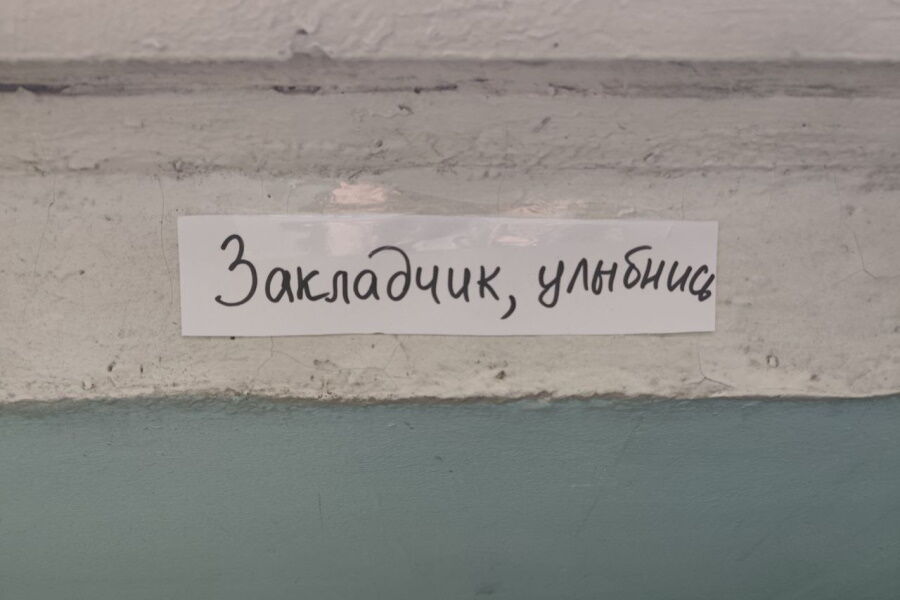 Закладчик, улыбнись